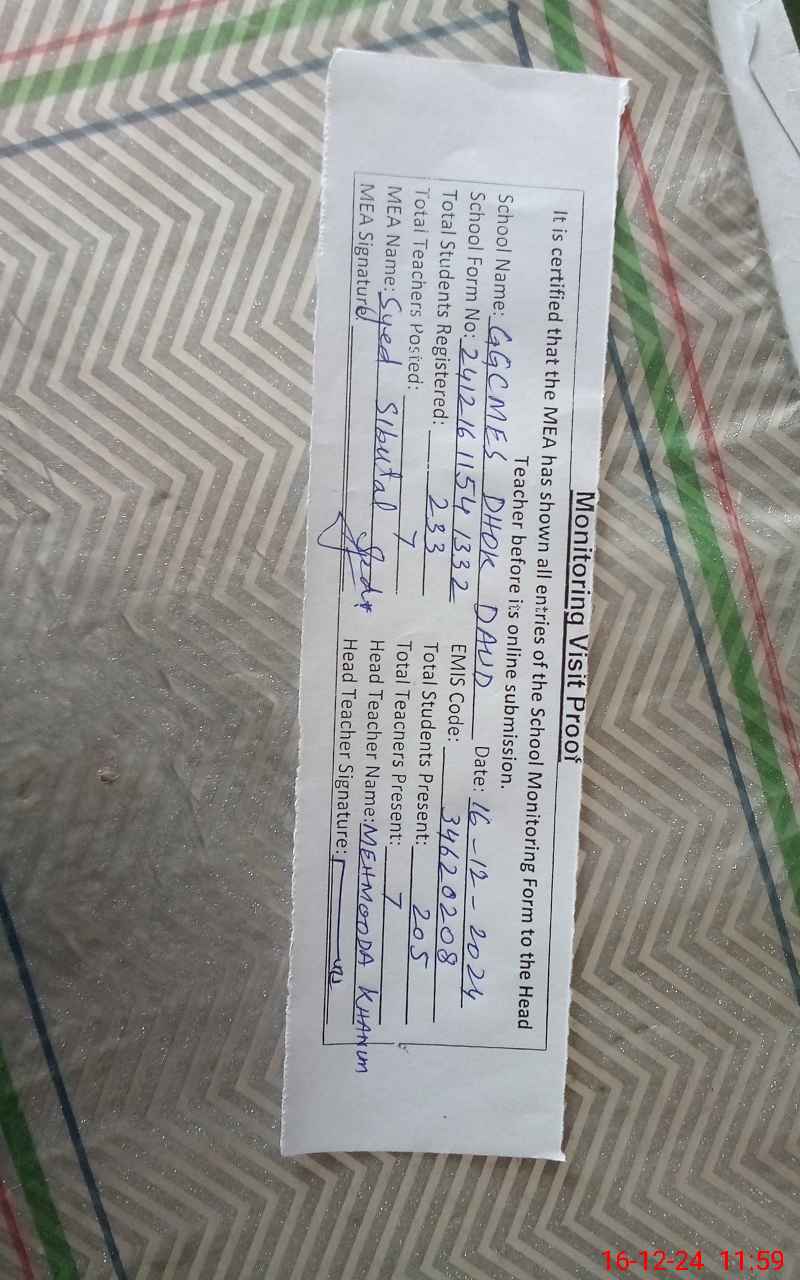 Monitoring Visit Proof
It is certified that the MEA has shown all entries of the School Monitoring Form to the Head
Teacher before its online submission.
School Name: GGCMES DHOK DAUD Date: 16-12-2024
School Form No: 241216 1154 1332 EMIS Code: 34620208
Total Students Registered: 233 Total Students Present: 205
Total Teachers Posted: 7 Total Teachers Present: 7
MEA Name: Syed Sibutal Head Teacher Name: MEHMOODA KHANUM
MEA Signature Head Teacher Signature:
16-12-24 11:59